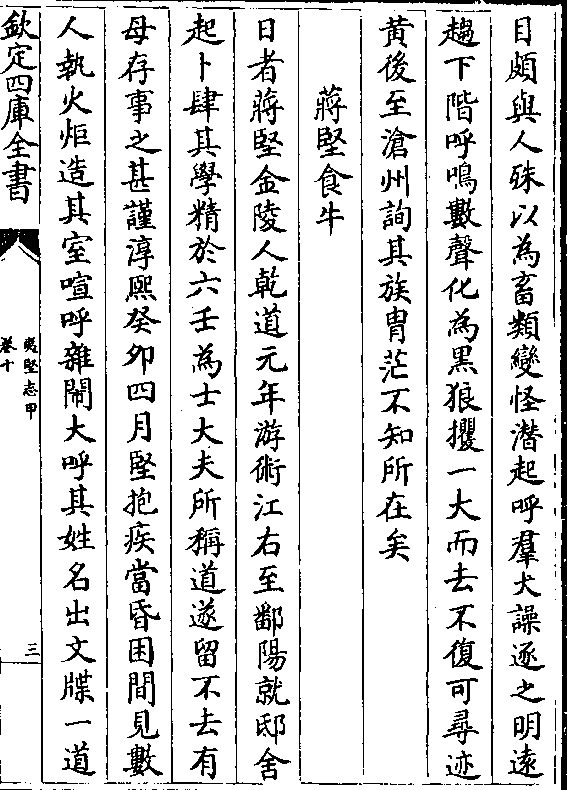 目頗與人殊以為畜類變怪潛起呼羣犬譟逐之明遠
趨下階呼鳴數聲化為黑狼攫一大而去不復可尋迹
黃後至滄州詢其族胄茫不知所在矣
蔣堅食牛
日者蔣堅金陵人乾道元年游術江右至鄱陽就邸舍
起卜肆其學精於六壬為士大夫所稱道遂留不去有
母存事之甚謹淳熙癸卯四月堅抱疾當昏困間見數
人執火炬造其室喧呼雜鬧大呼其姓名出文牒一道
欽定四庫全書
夷堅志甲
卷十
三